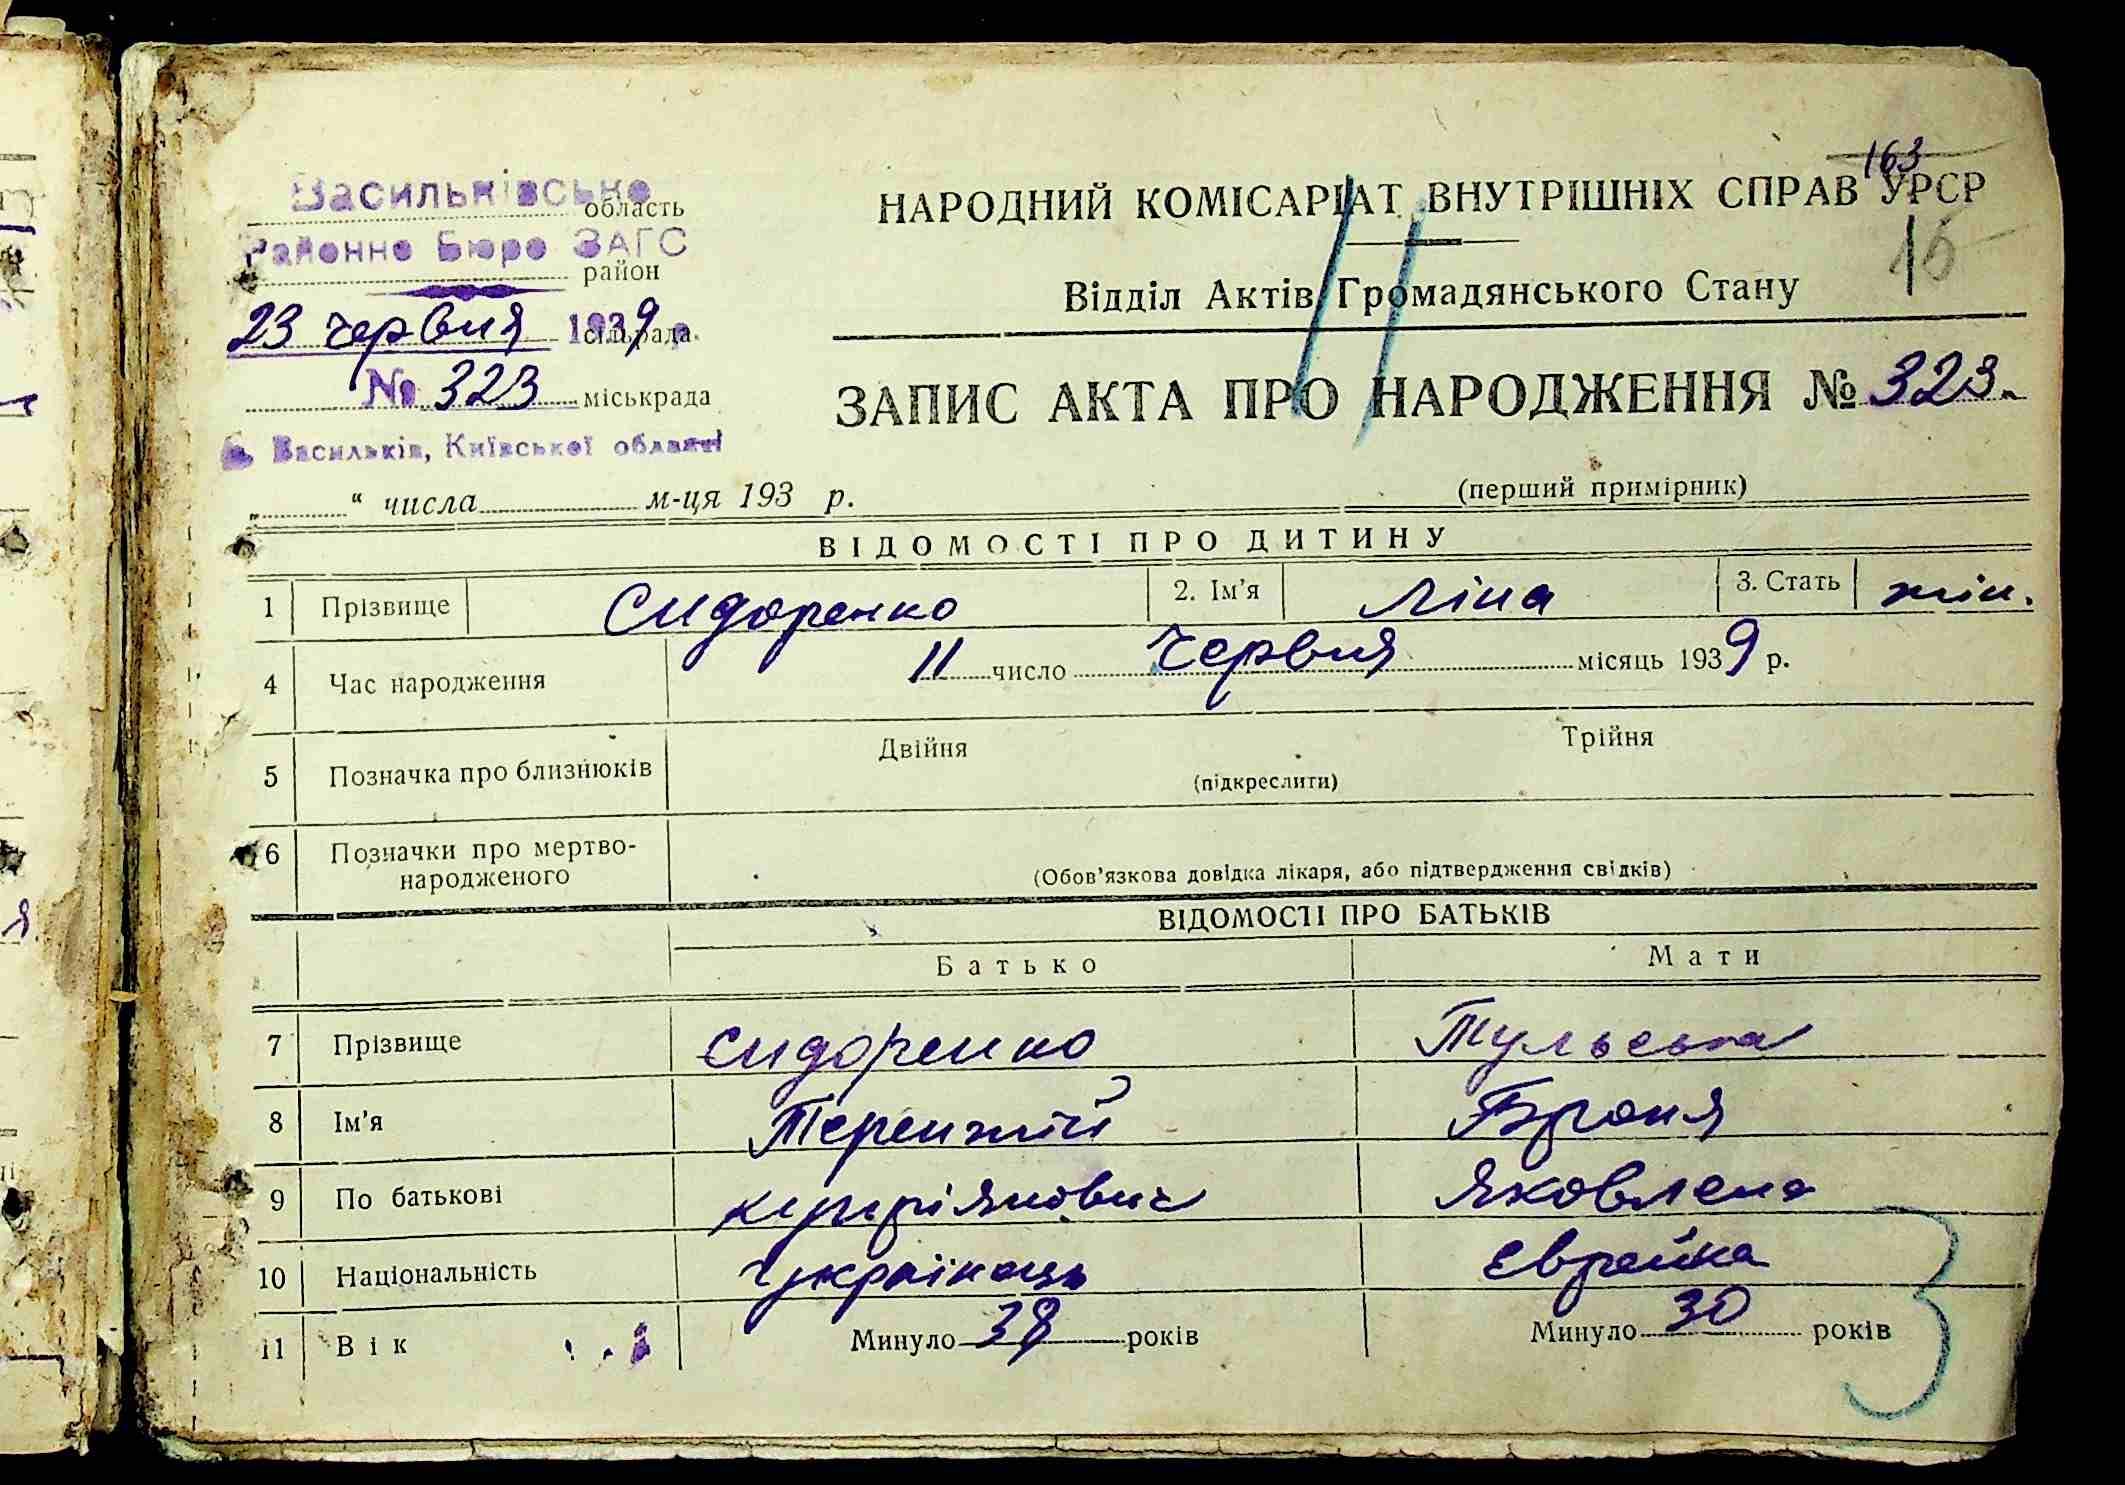 163
НАРОДНИЙ КОМІСАРІАТ ВНУТРІШНІХ СПРАВ УРСР
15
Відділ Актів Громадянського Стану
Васильківське
область
Районне Бюро ЗАГС
район
23 червня 1939 р.
сільрада
№ 323 міськрада
м. Васильків, Київської області
ЗАПИС АКТА ПРО НАРОДЖЕННЯ № 323.
„ “ числа м-ця 193 р.
(перший примірник)
ВІДОМОСТІ ПРО ДИТИНУ
1 Прізвище Сидоренко 2. Ім'я Ліна 3. Стать жін.
4 Час народження 11 число Червня місяць 1939 р.
5 Позначка про близнюків Двійня Трійня
(підкреслити)
6 Позначки про мертво-
народженого (Обов'язкова довідка лікаря, або підтвердження свідків)
ВІДОМОСТІ ПРО БАТЬКІВ
Батько Мати
7 Прізвище Сидоренко Тульська
8 Ім'я Терентій Броня
9 По батькові купріянович Яковлена
10 Національність українець Єврейка
11 Вік Минуло 38 років Минуло 30 років
3